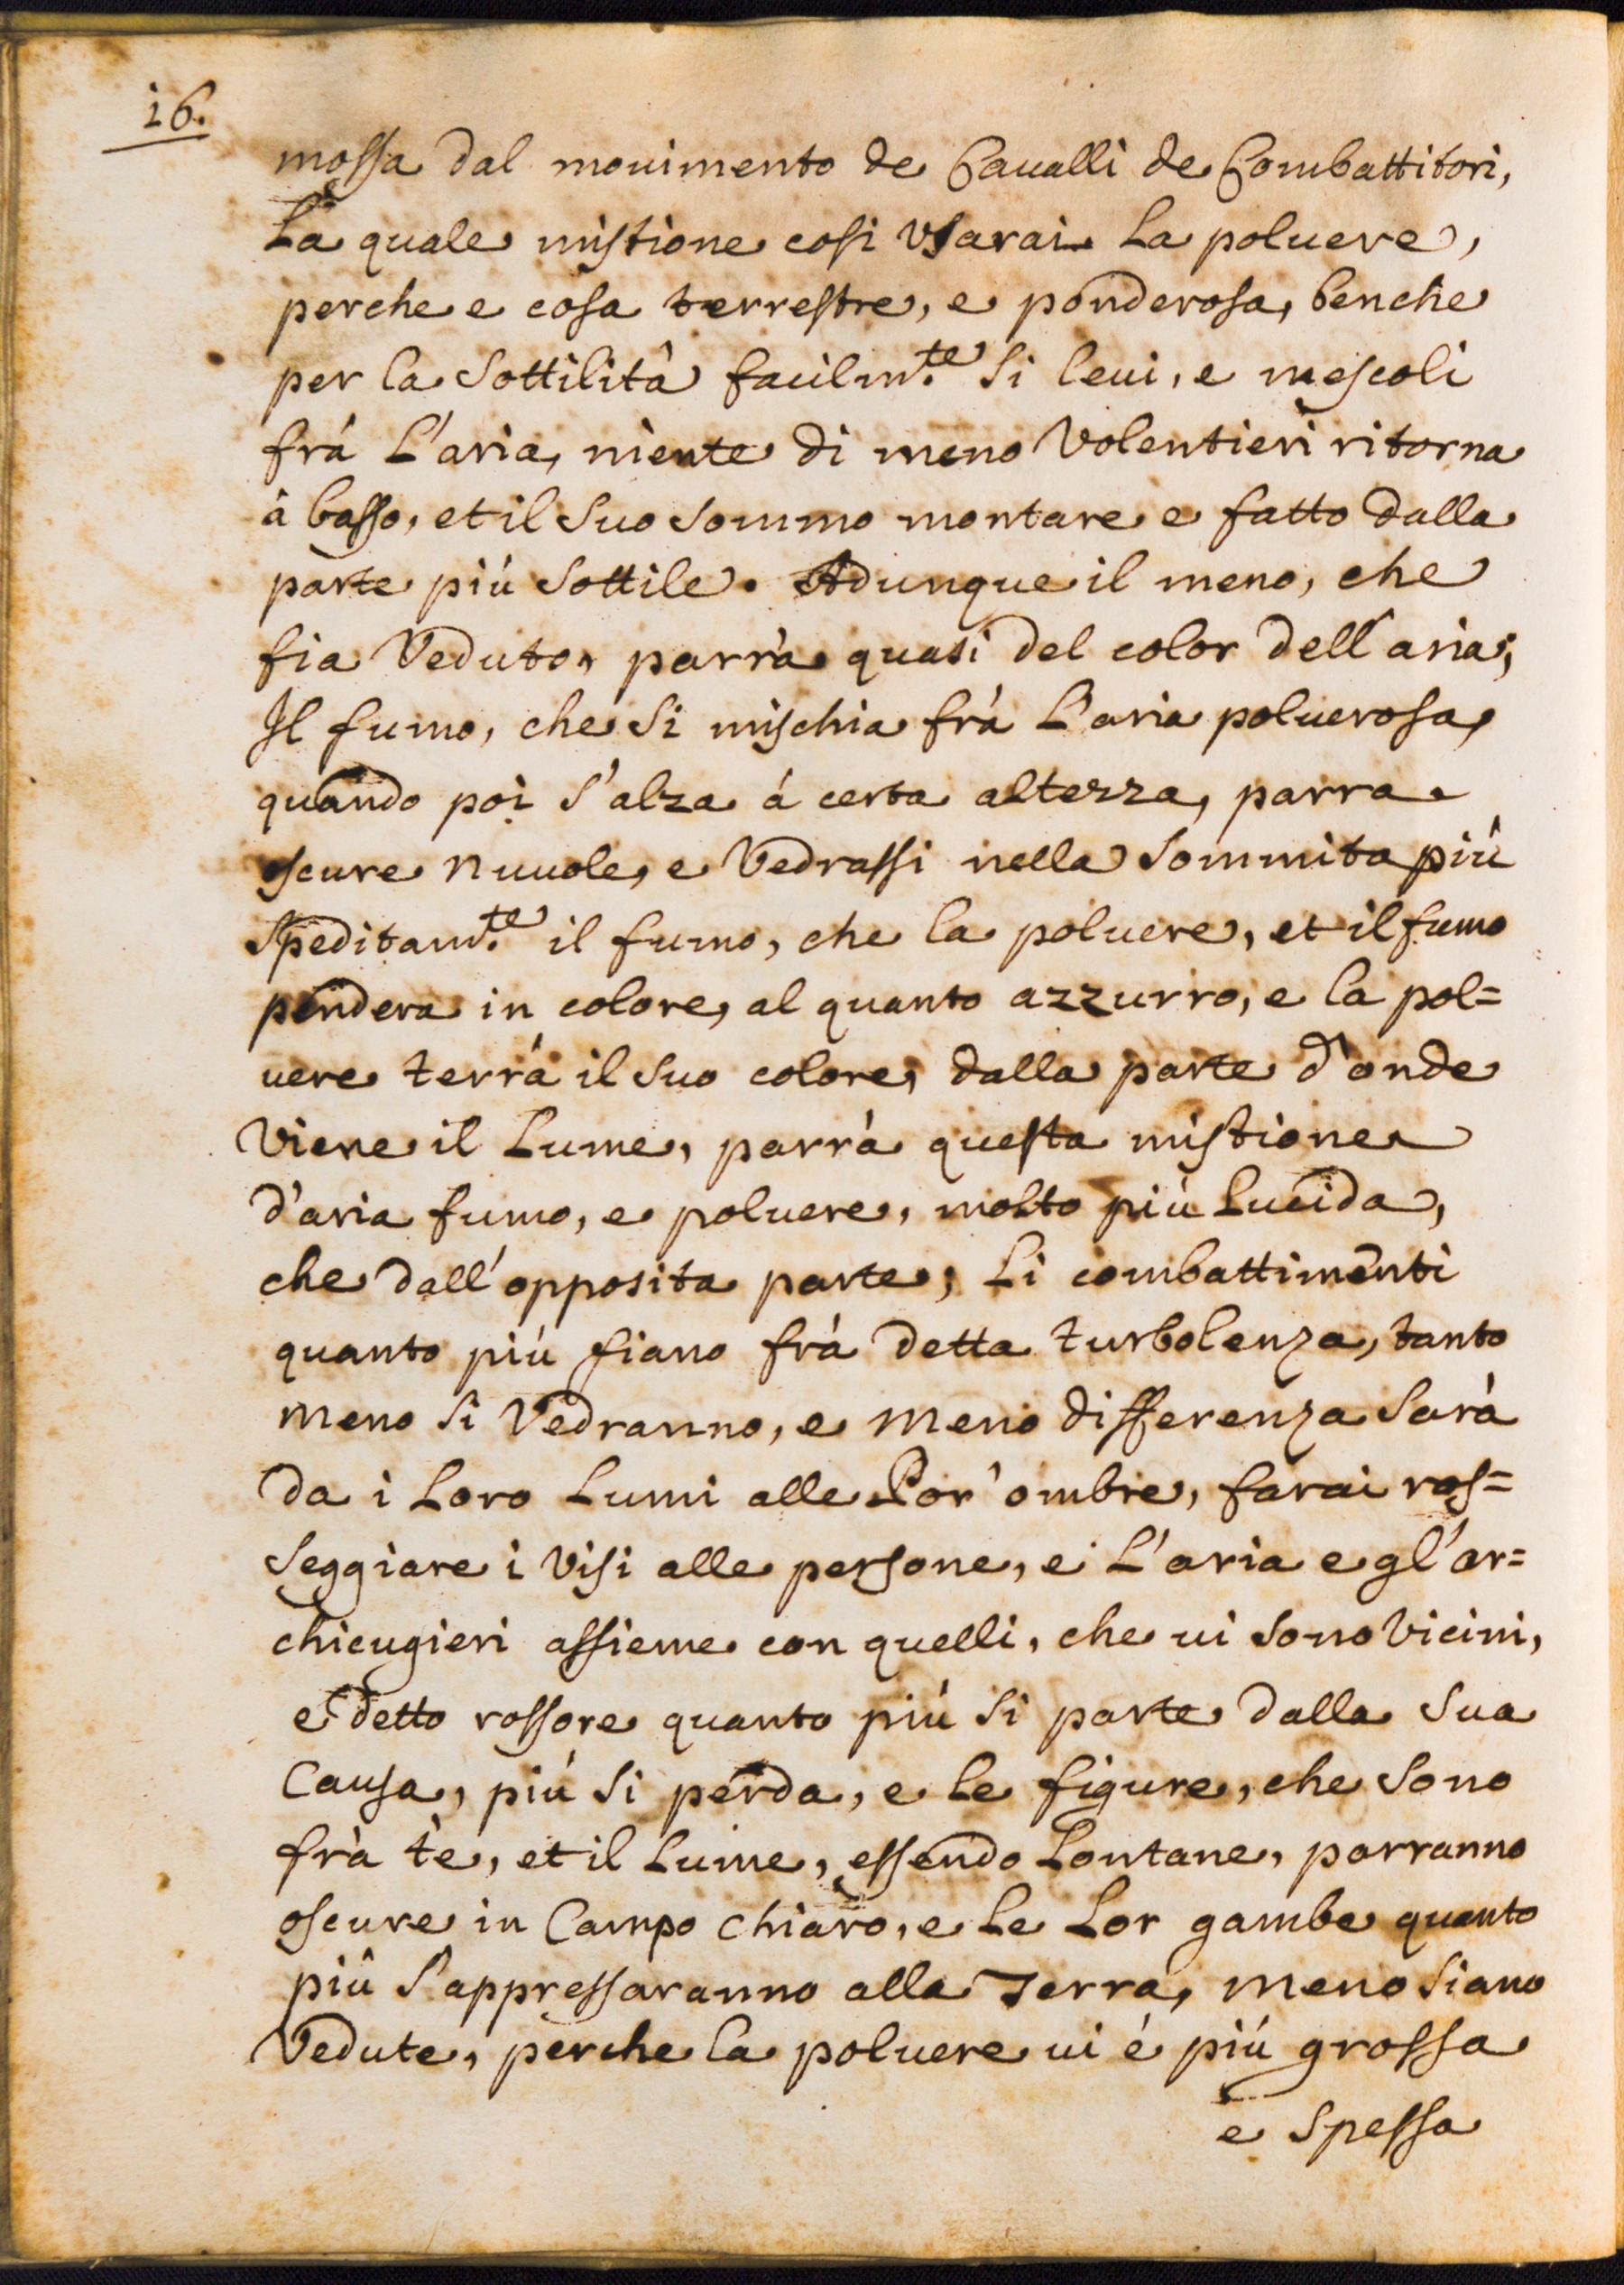 16.
mossa dal mouimento de Caualli de Combattitori,
La quale mistione cosi Vsarai La poluere,
perche e cosa terrestre, e ponderosa, benche
per la Sottilità facilm.te Si leui, e mescoli
frà L'aria, niente di meno Volentieri ritorna
à basso, et il Suo Sommo montare e fatto dalla
parte più Sottile. Adunque il meno, che
fia Veduto, parrà quasi del color dell'aria;
Il fumo, che Si mischia frà L'aria poluerosa,
quando poi S'alza á certa altezza, parra
oscure nuuole, e Vedrassi nella Sommita più
Speditam.te il fumo, che la poluere, et il fumo
penderà in colore, al quanto azzurro, e la pol=
uere terrà il Suo colore, dalla parte d'onde
Viene il Lume, parrà questa mistione
d'aria fumo, e poluere, molto più Lucida,
che dall'opposita parte; Li combattimenti
quanto più fiano frà detta turbolenza, tanto
meno Si Vedranno, e meno differenza Sarà
da i Loro Lumi alle Lor'ombre, farai ros=
Seggiare i Visi alle persone, e L'aria e gl'ar=
chicugieri assieme con quelli, che ui Sono Vicini,
e detto rossore quanto più Si parte dalla Sua
Causa, più Si perda, e Le figure, che Sono
frà tè, et il Lume, essendo Lontane, parranno
oscure in Campo chiaro, e Le Lor gambe quanto
più S'appressaranno alla Terra, meno Siano
Vedute, perche la poluere ui é più grossa
e Spessa